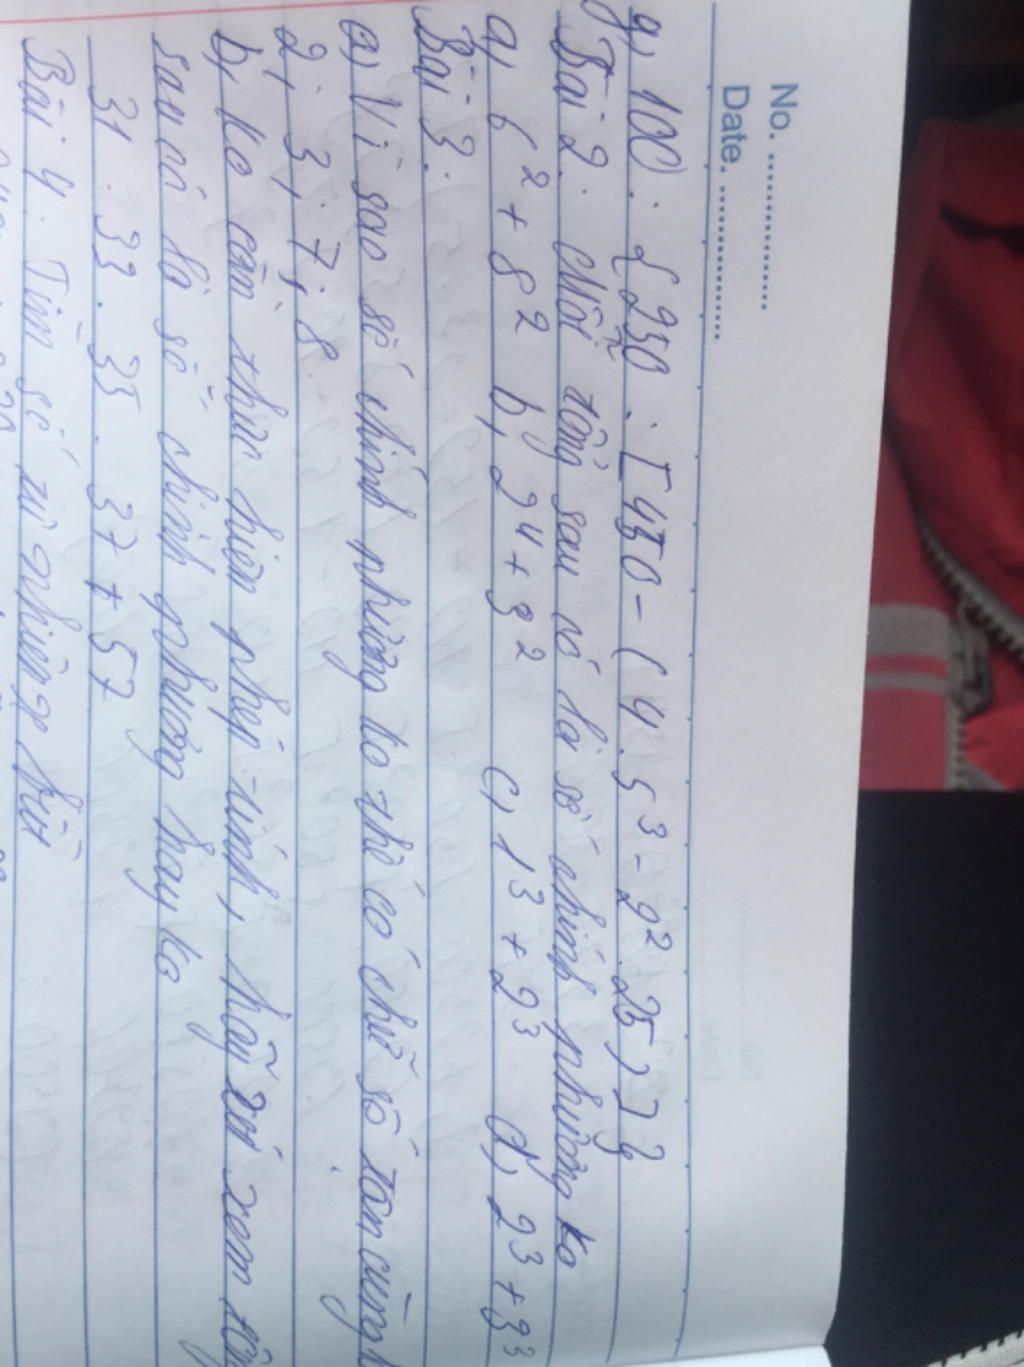 No. ....................
Date. ....................
g, 100 : {250 : [450 - (4.5³ - 2².25)]}
Bài 2. Mỗi tổng sau có là số chính phương ko
a, 6² + 8² b, 2⁴ + 3² c, 1³ + 2³ d, 2³ + 3³
Bài 3.
a) Vì sao số chính phương ko thể có chữ số tận cùng
2; 3; 7; 8.
b, Ko cần thực hiện phép tính, hãy xét xem tổng
sau có là số chính phương hay ko
31 . 33 . 35 . 37 + 57
Bài 4. Tìm số tự nhiên